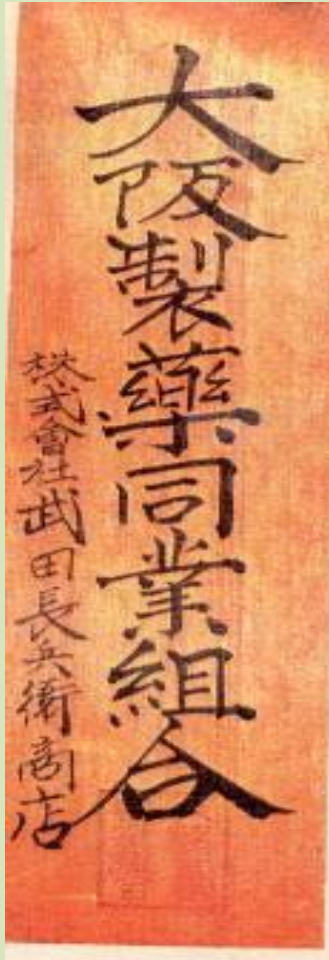 大阪製藥同業組合
株式會社武田長兵衞商店